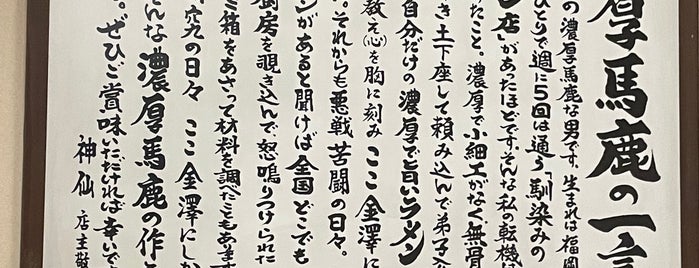 厚馬鹿の一言
の濃厚馬鹿な男です。生まれは福岡
ひとりで週に5回は通う「馴染みの
ン店」があったほどです。そんな私の転機に
ったこと。濃厚で小細工がなく、無骨
き土下座して頼み込んで弟子入
教え(心)を胸に刻み ここ金澤に
自分だけの濃厚で旨いラーメン
。それからも悪戦苦闘の日々。
ンがあると聞けば全国どこでも
厨房を覗き込んで怒鳴りつけられた
ミ箱をあさって材料を調べたこともあります
究の日々 ここ金澤にしか
そんな濃厚馬鹿の作る
。ぜひご賞味いただければ幸いで
神仙 店主敬